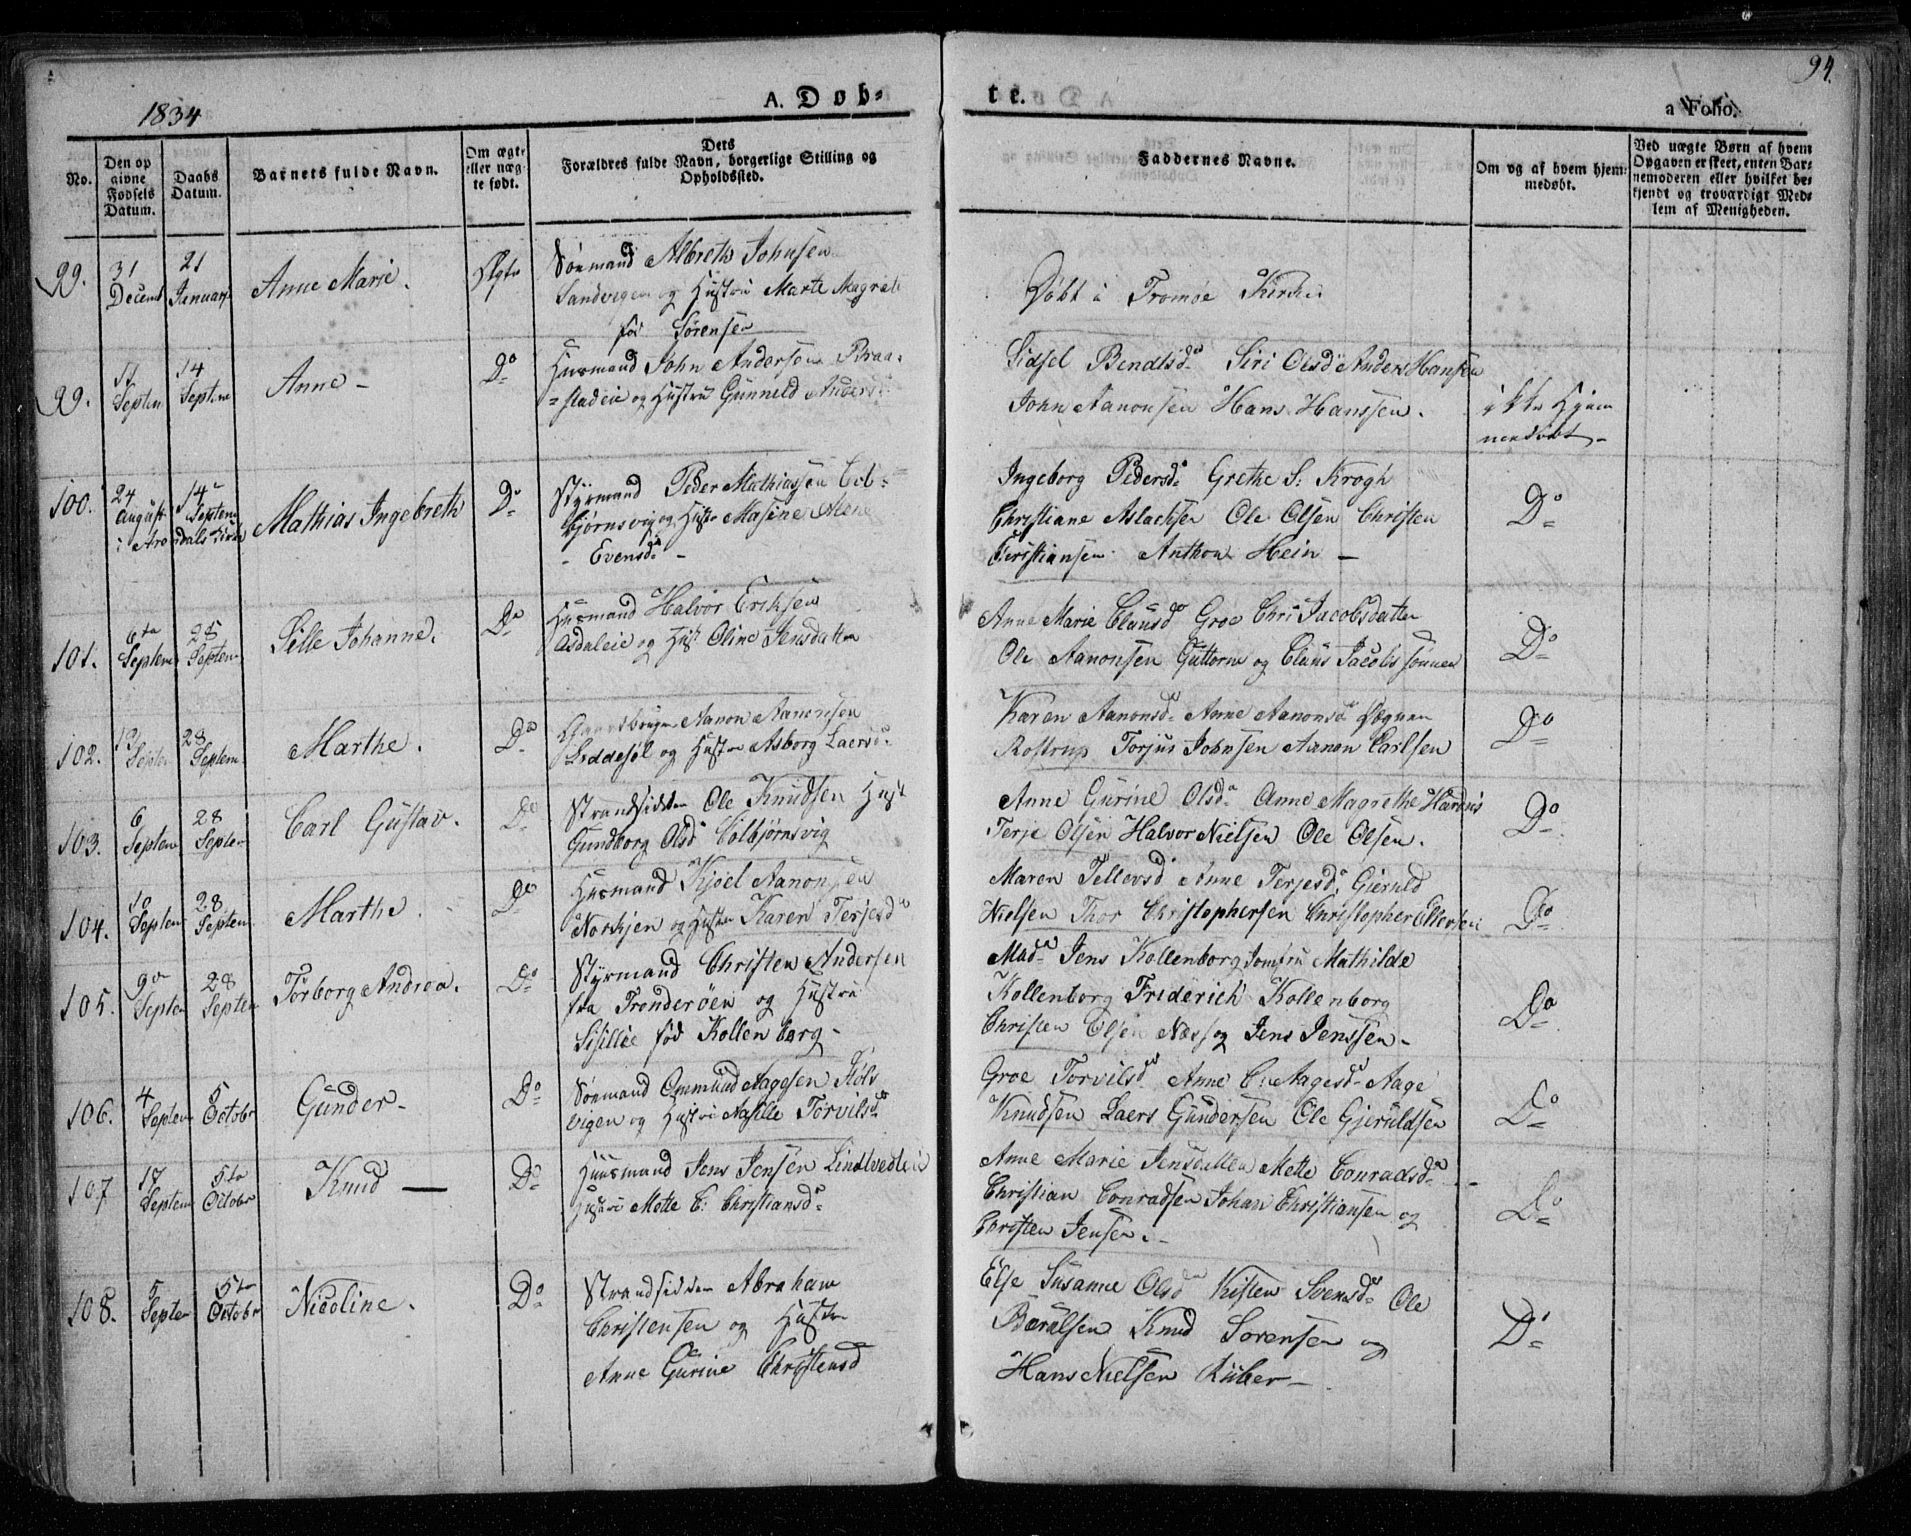 94.
1834
A. Døb-
te.
a Folio.
No.
Den opgivne Fødsels Datum.
Daabs Datum.
Barnets fulde Navn.
Om ægte eller uægte født.
Dets Forældres fulde Navn, borgerlige Stilling og Opholdssted.
Faddernes Navne.
Om og af hvem hjemmedøbt.
Ved uægte Børn af hvem Opgaven er skeet, enten Barnemoderen eller hvilket bekjendt og troværdigt Medlem af Menigheden.
99. 31 Decemb 21 Januar Anne Marie. Ægte
Sømand Albreth Johnsen
Sandvigen og Hustru Marte Magrete
fød Sørensen
Døbt i Tromøe Kirke
99. 11 Septem 14 Septem Anne - Do
Husmand John Andersen Braa-
=stadeie og Hustru Gunneld Anders
Sidsel Bendtsd. Siri Olsd Anders Hansen
John Aanonsen Hans Hanssen.
ikke Hjem
medøbt -
100. 24 August 14 Septem i Arendals Kirke Mathias Ingebreth Do
Styrmand Peder Mathiassen Col-
bjørnsvig og Hustr Masine Alene
- Evensd -
Ingeborg Pedersd. Grethe S: Krogh
Christiane Aslachsen Ole Olsen Christen
Christiansen Anthon Hein -
Do
101. 6te Septem 28 Septem Sille Johanne. Do
Husmand Halvor Eriksen
Asdaleie og Hust Oline Jensdatter
Anne Marie Clausd Groe Chri Jacobsdatter
Ole Aanonsen Guttorm og Claus Jacobssønner
Do
102. 28 Septem Marthe. Do
Aanon Aanonsen
Løddesøl og Hustru Asborg Laersd.
Karen Aanonsd. Anne Aanonsd
Rostrup Torjus Johnsen Aanon Carlsen
Do
103. 6 Septem 28 Septem Carl Gustav. Do
Strandsidder Ole Knudsen Hust
Gundborg Olsd Colbjørnsvig
Anne Gurine Olsd. Anne Magrethe
Terje Olsen Halvor Nielsen Ole Olsen.
Do
104. 10 Septem 28 Septem Marthe. Do
Husmand Kjøel Aanonsen
og Hustru Karen Terjesd
Maren Tellevsd Anne Terjesd. Gieruld
Nielsen Thor Christophersen Christopher Ellevsen
Do
105. 9de Septem 28 Septem Torborg Andrea. Do
Styrmand Christen Andersen
fra Trønderøen og Hustru
Sisillie fød Kollenborg -
Mad. Jens Kollenborg Jomfru Mathilde
Kollenborg Friderich Kollenborg
Christen Olsen Næs og Jens Jenssen -
Do
106. 4 Septem 5 Octobr Gunder - Do
Sømand Ommund Aagesen Støls
vigen og Hustru Aasille Torvilsd
Groe Torvilsd Anne C: Aagesd. Aage
Knudsen Laers Gundersen Ole Gieruldsen
Do
107 17 Septem 5te Octobr Knud - Do
Huusmand Jens Jensen Lindtvedteie
Hustru Mette C: Christiansd.
Anne Marie Jensdatter Mette Conradsd.
Christian Conradsen Johan Christiansen og
Christen Jensen. -
Do
108. 5 Septem 5te Octobr Nicoline. Do
Strandsidder Abraham
Christensen og Hustru
Anne Gurine Christensd
Else Susanne Olsd Kisten Svensd. Ole
Knud Sørensen og
Hans Nielsen -
Do